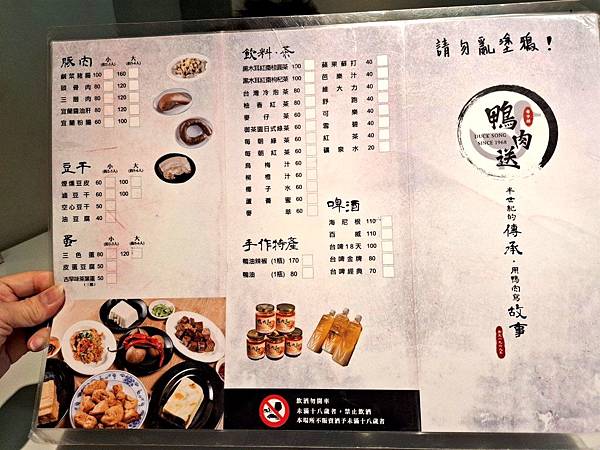 豚肉 小 大
鹹菜豬腸 100 160
頭骨肉 80 120
三層肉 80
宜蘭膽油肝 80
宜蘭粉腸 60
豆干 小 大
煙燻豆皮 60 100
滷豆干 60 100
空心豆干 50
油豆腐 40
蛋 小 大
三色蛋 80 120
皮蛋豆腐 50
古早味茶葉蛋 50
飲料·茶
黑木耳紅棗桂圓茶 100
黑木耳紅棗枸杞茶 100
台灣冷泡茶 80
柚香紅茶 80
麥仔茶 60
御茶園日式綠茶 60
每朝綠茶 60
每朝紅茶 60
烏梅汁 60
柳橙汁 60
椰子水 60
蘆薈 60
蘋果蘇打 40
芭樂汁 40
維大力 40
舒跑 40
可樂 40
雪碧 40
紅茶 40
礦泉水 20
啤酒
海尼根 110
百威 110
台啤18天 100
台啤金牌 80
台啤經典 70
手作特產
鴨油辣椒 (1瓶) 170
鴨油 (1瓶) 80
飲酒勿開車
未滿十八歲者，禁止飲酒
本場所不販賣酒予未滿十八歲者
請勿亂塗鴉！
鴨肉送
DUCK SONG
SINCE 1968
半世紀的傳承，用鴨肉寫故事